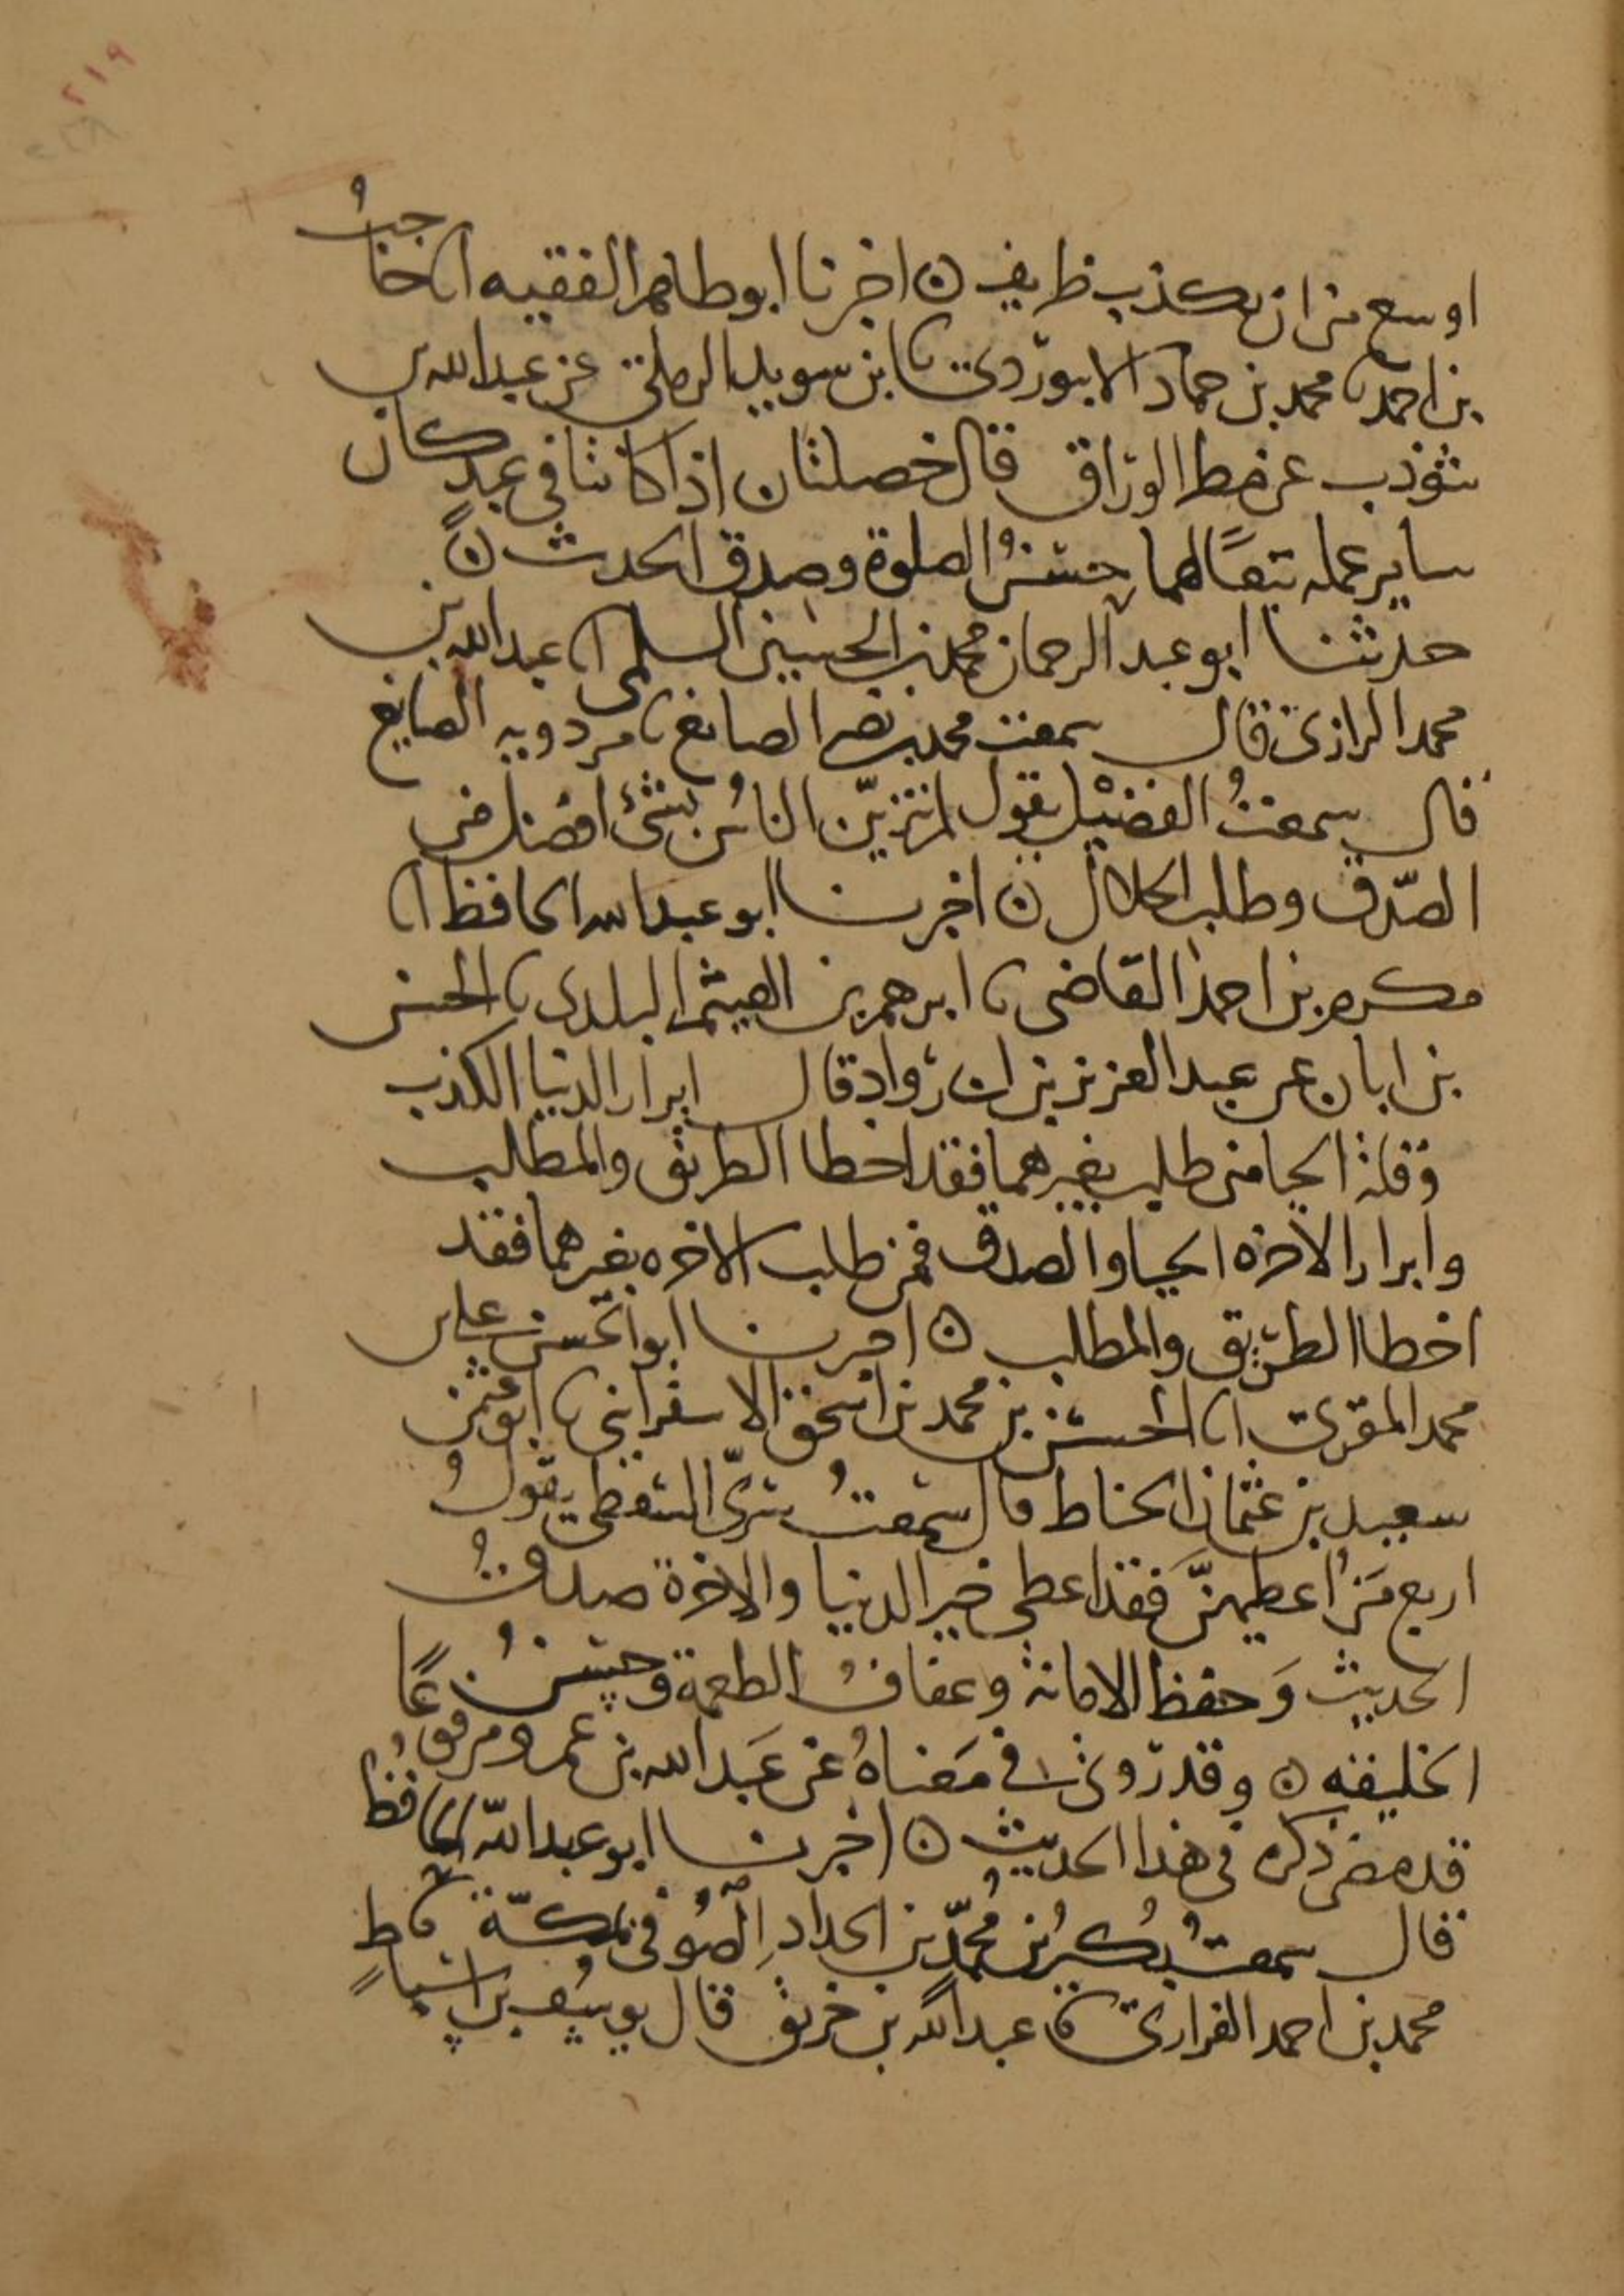 ٢١٩
اوسع من ان يكذب ظريف ن اخبرنا ابو طاهر الفقيه انا حاجبُ
بن احمد نا محمد بن حماد الابيوردي نا ابن سويد الرملي عن عبد الله بن
شوذب عن مطر الوراق قال خصلتان اذا كانتا في عبد كان
ساير عمله تبعًا لهما حسنُ الصلوة وصدق الحديث ن
حدثنا ابو عبد الرحمان محمد بن الحسين السلمي انا عبد الله بن
محمد الرازي قال سمعت محمد بن نصر الصايغ نا مردويه الصايغ
قال سمعتُ الفضيْل يقول لم يتزيّن الناسُ بشئ افضل من
الصّدق وطلب الحلال ن اخبرنا ابو عبد الله الحافظ انا
مكرم بن احمد القاضي نا ابرهيم بن الهيثم البلدي نا الحسن
بن ابان عن عبد العزيز بن ابي رواد قال ابرار الدنيا الكذب
وقلة الحيا من طلب بغيرهما فقد اخطا الطريق والمطلب
وابرار الاخره الحيا والصدق فمن طلب الاخره بغيرهما فقد
اخطا الطريق والمطلب ن اخبرنا ابو الحسن علي بن
محمد المقرئ انا الحسن بن محمد بن اسحق الاسفرايني نا ابو عثمن
سعيد بن عثمان الحناط قال سمعتُ سريّ السقطي يقولُ
اربع مَن اُعطيهنّ فقد اعطي خير الدنيا والاخرة صدقُ
الحديث وَحفظ الامانة وعفافُ الطعمة وحسنُ
الخليقه ن وقد روي في مَعناهُ عن عَبد الله بن عمرو مرفوعًا
قد مضى ذكره في هذا الحديث ن اخبرنا ابو عبد اللّه الحافظُ
قال سمعت بُكيرُ بن مُحمّد بن الحدادِ الصُوفي بمكّة نا
محمد بن احمد الفزاري نا عبد الله بن خبيق قال يوسُف بن اسباطٍ